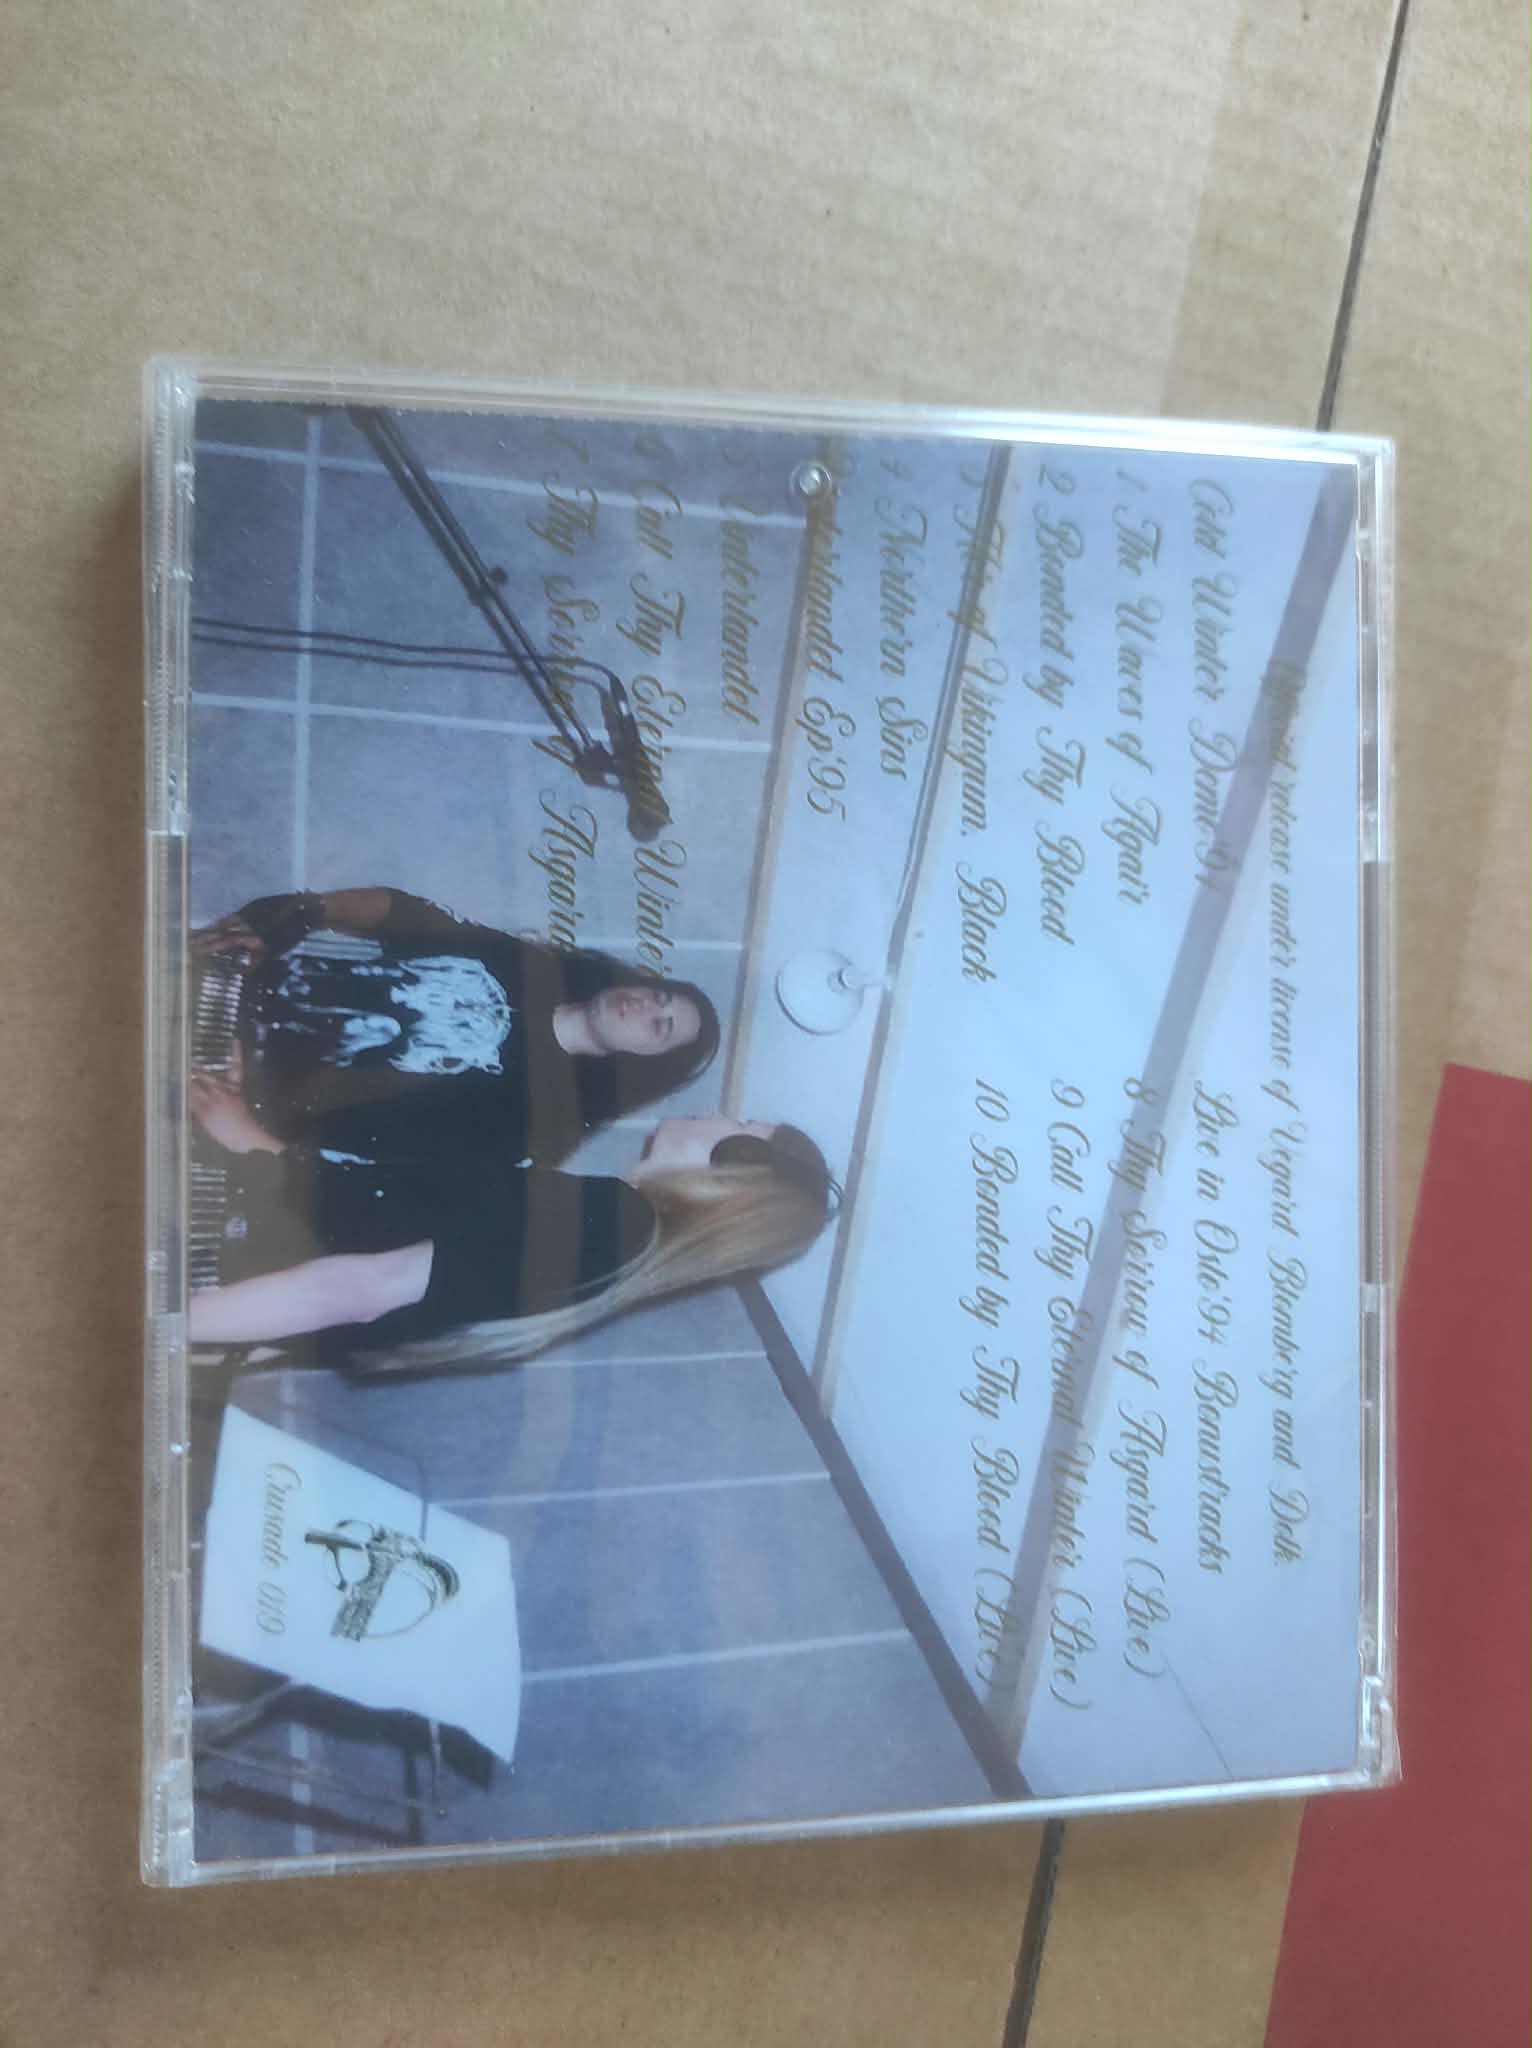 Official release under license of Vegard Blomberg and Dolk.
Cold Winter Demo'94
1 The Waves of Agair
2 Bonded by Thy Blood
3 Ask of Vikingum. Black
4 Northern Sins
Vinterlandet Ep'95
5 Vinterlandet
6 Call Thy Eternal Winter
7 Thy Sorrow of Asgard
Live in Oslo'94 Bonustracks
8 Thy Sorrow of Asgard (Live)
9 Call Thy Eternal Winter (Live)
10 Bonded by Thy Blood (Live)
Crusade 019